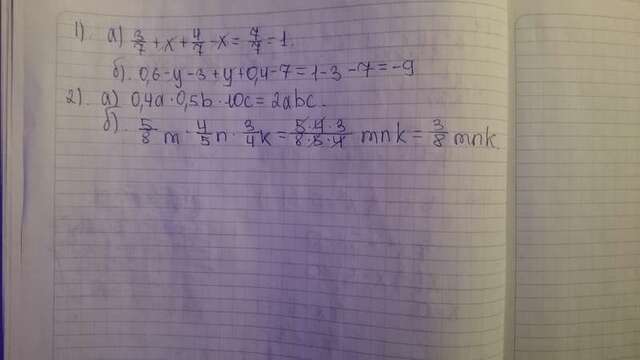 1) а) 3/7 + x + 4/7 - x = 7/7 = 1.
б). 0,6 - y - 3 + y + 0,4 - 7 = 1 - 3 - 7 = -9
2). а) 0,4a · 0,5b · 10c = 2abc.
б) 5/8 m · 4/5 n · 3/4 k = 5·4·3/8·5·4 mnk = 3/8 mnk.